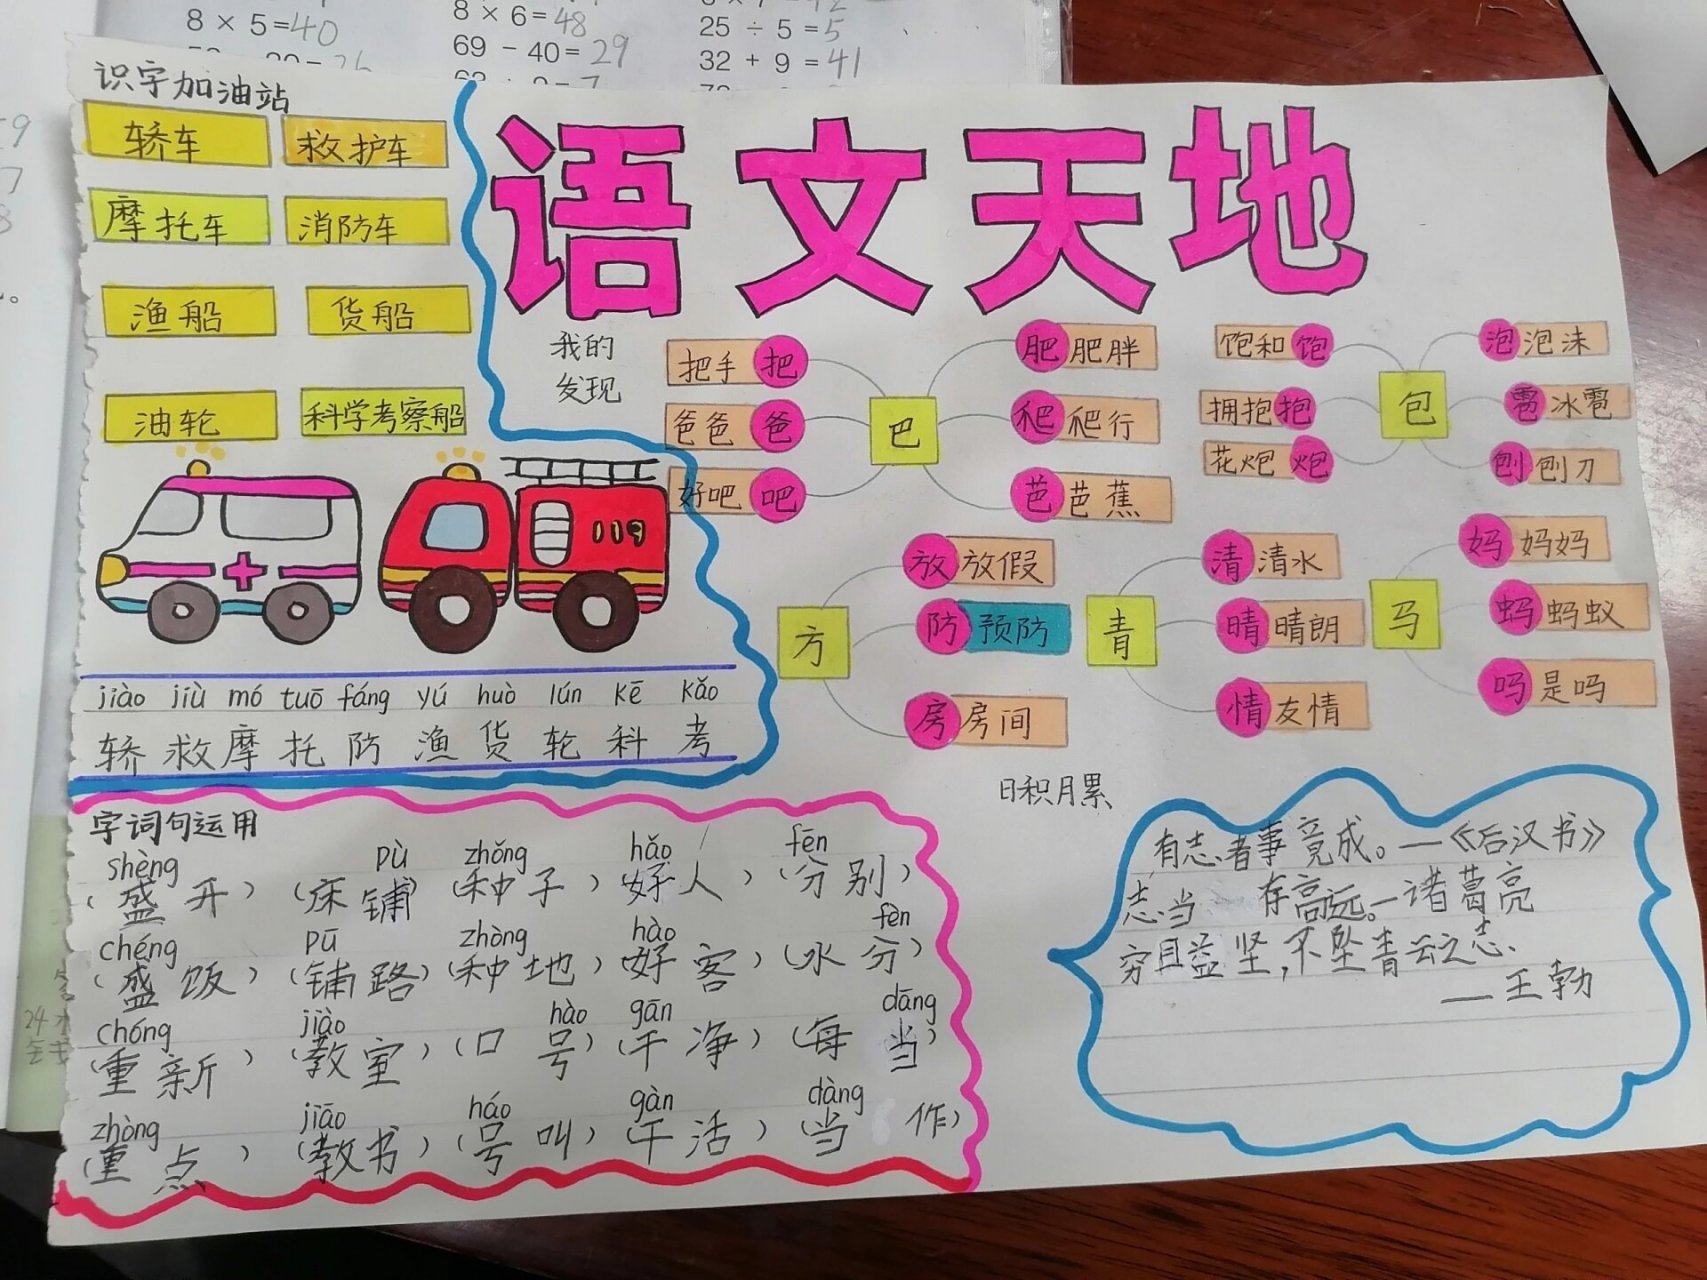 8 × 5 = 40
8 × 6 = 48
69 - 40 = 29
25 ÷ 5 = 5
32 + 9 = 41
识字加油站
轿车 救护车
摩托车 消防车
渔船 货船
油轮 科学考察船
119
jiào jiù mó tuō fáng yú huò lún kē kǎo
轿 救 摩 托 防 渔 货 轮 科 考
语文天地
我的
发现
巴
把手 把
爸爸 爸
好吧 吧
肥 肥胖
爬 爬行
芭 芭蕉
包
饱和 饱
拥抱 抱
花炮 炮
泡 泡沫
雹 冰雹
刨 刨刀
方
放 放假
防 预防
房 房间
青
清 清水
晴 晴朗
情 友情
马
妈 妈妈
蚂 蚂蚁
吗 是吗
字词句运用
shèng pù zhǒng hǎo fēn
(盛开) (床铺) (种子) (好人) (分别)
chéng pū zhòng hào fèn
(盛饭) (铺路) (种地) (好客) (水分)
chóng jiào hào gān dāng
(重新) (教室) (口号) (干净) (每当)
zhòng jiāo háo gàn dàng
(重点) (教书) (号叫) (干活) (当作)
日积月累
有志者事竟成。—《后汉书》
志当 存高远。—诸葛亮
穷且益坚,不坠青云之志、
——王勃